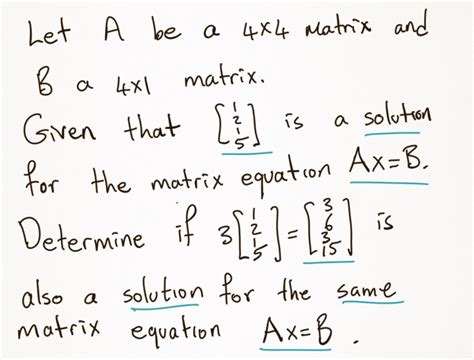 Let A be a 4x4 Matrix and
B a 4x1 matrix.
Given that [1 2 1 5] is a solution
for the matrix equation Ax=B.
Determine if 3[1 2 1 5]=[3 6 3 15] is
also a solution for the same
matrix equation Ax=B.